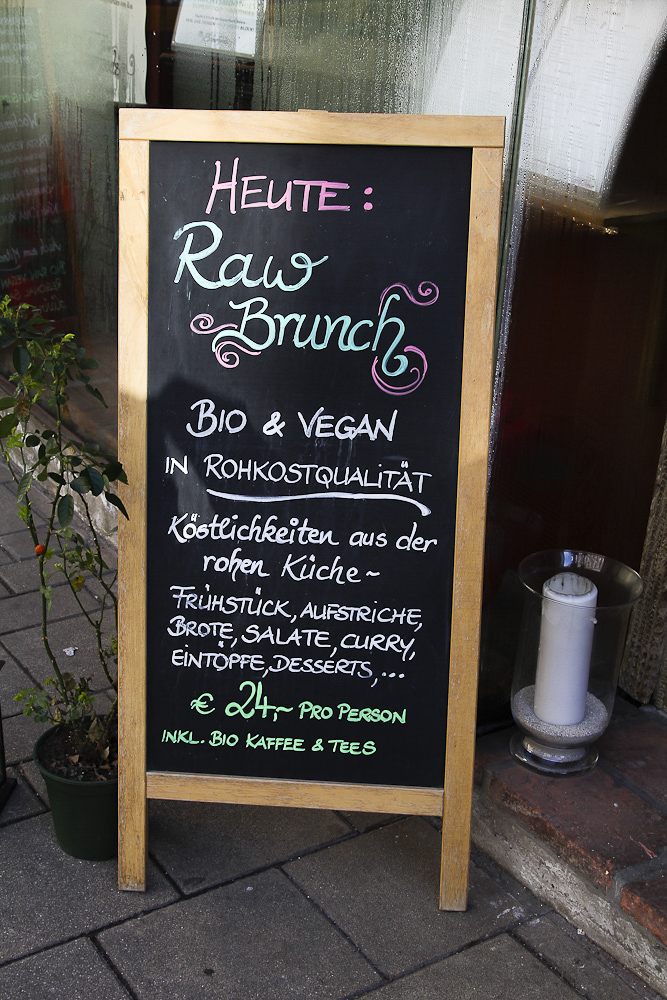 HEUTE:
Raw
Brunch
BIO & VEGAN
IN ROHKOSTQUALITÄT
Köstlichkeiten aus der
rohen Küche~
FRÜHSTÜCK, AUFSTRICHE,
BROTE, SALATE, CURRY,
EINTÖPFE, DESSERTS,...
€ 24,~ PRO PERSON
INKL. BIO KAFFEE & TEES